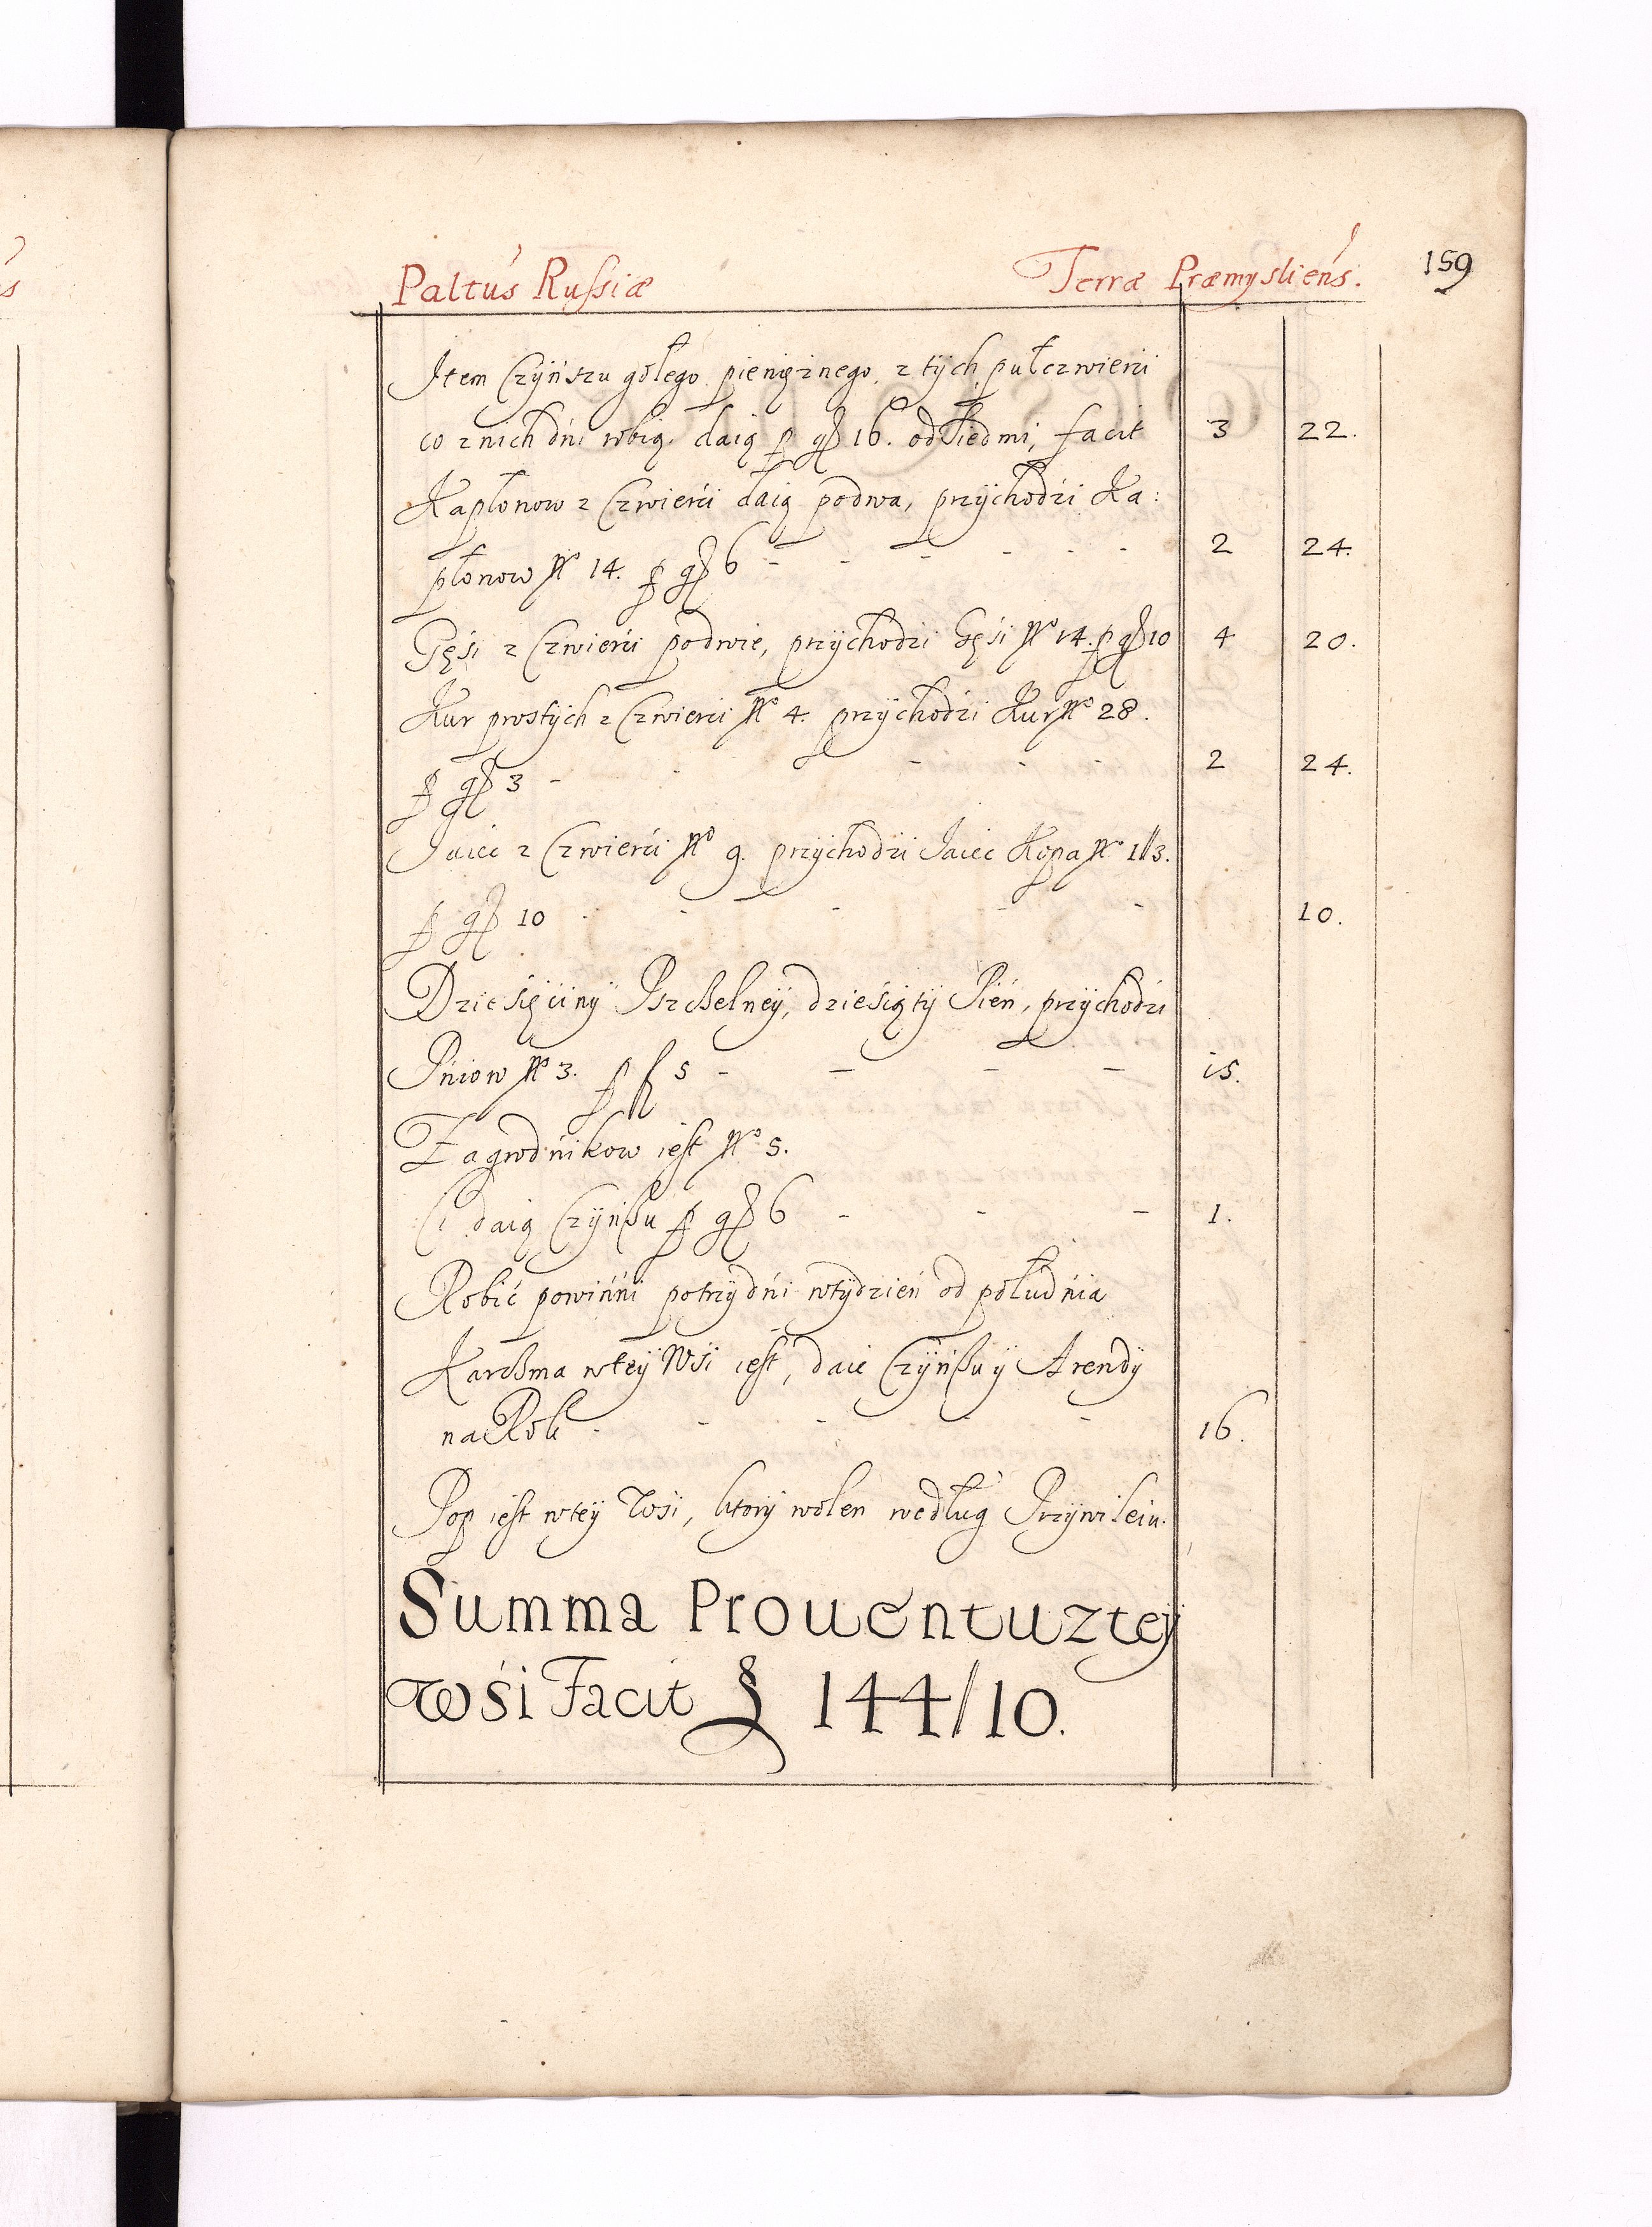 Paltus Russiæ Terræ Præmysliens. 159
Item Czÿnszu gołego pieniężnego, z tÿch pułczwierci
co z nich dni robią, daią p. gr 16. od Siedmi, facit 3 22.
Kapłonow z Czwierci daią po dwa, przÿchodzi Ka:
płonow No 14. p. gr 6 - - - - - - 2 24.
Gęsi z Czwierci po dwie, przÿchodzi Gęsi No 14. p gr 10 4 20.
Kur prostÿch z Czwierci No 4. przÿchodzi Kur No 28.
p. gr 3 - - - - - 2 24.
Jaiec z Czwierci No 9. przÿchodzi Jaiec Kopa No 1//3.
p. gr 10 - - - - - 10.
Dziesięcinÿ Pszczelneÿ, dziesiątÿ Pień, przÿchodzi
Pniow No 3. p. f 5 - - - - 15.
Zagrodnikow iest No 5.
Ci daią Czÿnßu p. gr 6 - - - 1.
Robić powinni po trzÿ dni w tÿdzień od południa
Karcßma w teÿ Wsi iest, daie Czÿnßu ÿ Arendÿ
na Rok - - - - - - 16.
Pop iest w teÿ Wsi, ktorÿ wolen według Przÿwileiu.
Summa Prouentu z teÿ
Wśi Facit § 144/10.